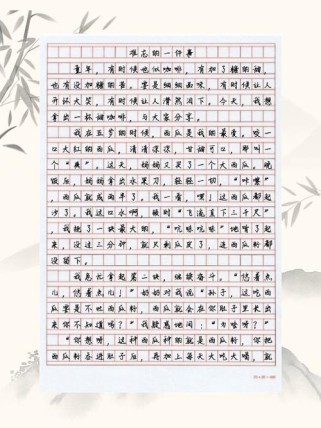 难忘的一件事
童年，有时候也似咖啡，有加了糖的甜，
也有没加糖的苦。要是细细品味，有时候让人
开怀大笑，有时候让人潸然泪下。今天，我想
拿出一杯甜咖啡，与大家分享。
我在五岁的时候，西瓜是我的最爱。咬一
口大红的西瓜，清清凉凉，甘甜可口，那叫一
个“爽”。这天，妈妈又买了一个大西瓜，晚
饭后，妈妈拿出水果刀，轻轻一切，“咔嚓”
，西瓜就成两半了。我一看，嘿，这西瓜都起
沙了。我这口水啊，顿时“飞流直下三千尺”
，我挑了一块最大的，“吭哧吭哧”地啃了起
来，没过三分钟，就只剩瓜皮了，连西瓜籽都
没留下。
我急忙拿起第二块，继续奋斗。“悠着点
儿，悠着点儿！”奶奶对我说“孙子，这吃西
瓜要是不吐西瓜籽，西瓜就会在你肚子里长出
来你不知道吗？”我疑惑地问：“为啥呀？”
“你想呀，这西瓜种的就是西瓜籽，你把
西瓜籽吞进肚子后，再加上每天大吃大喝，就